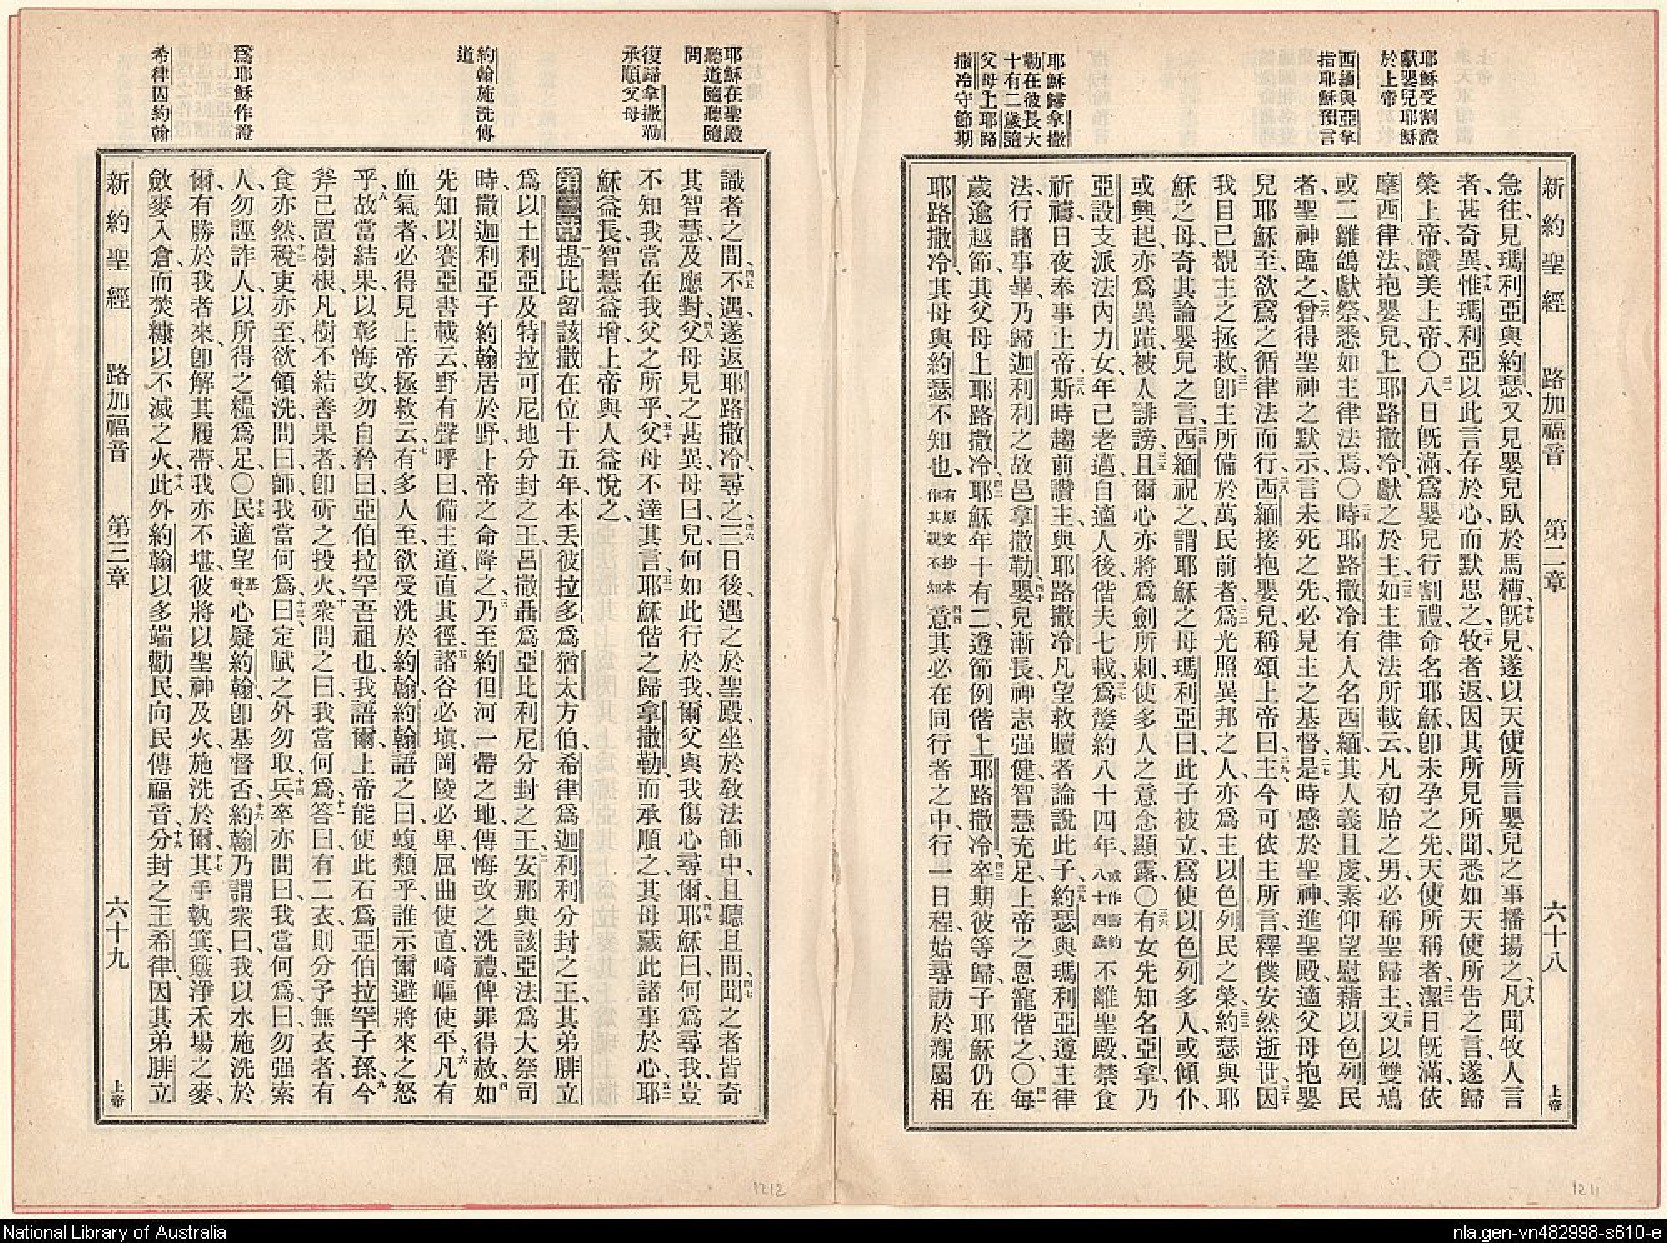 耶穌受割禮
獻嬰兒耶穌
於上帝
西緬與亞拿
指耶穌預言
耶穌歸拿撒
勒在彼長大
十有二歲隨
父母上耶路
撒冷守節期
新約聖經 路加福音 第二章 六十八 上帝
急往見瑪利亞與約瑟、又見嬰兒臥於馬槽、十七既見、遂以天使所言嬰兒之事播揚之、十八凡聞牧人言
者、甚奇異、十九惟瑪利亞以此言存於心而默思之、二十牧者返、因其所見所聞、悉如天使所告之言、遂歸
榮上帝、讚美上帝、〇二一八日既滿、爲嬰兒行割禮、命名耶穌、卽未孕之先、天使所稱者、二二潔日既滿、依
摩西律法、抱嬰兒上耶路撒冷、獻之於主、二三如主律法所載云、凡初胎之男、必稱聖歸主、二四又以雙鳩
或二雛鴿獻祭、悉如主律法焉、〇二五時耶路撒冷有人名西緬、其人義且虔、素仰望慰藉以色列民
者、聖神臨之、二六曾得聖神之默示、言未死之先、必見主之基督、二七是時感於聖神、進聖殿、適父母抱嬰
兒耶穌至、欲爲之循律法而行、二八西緬接抱嬰兒、稱頌上帝曰、二九主今可依主所言、釋僕安然逝世、三十因
我目已覩主之拯救、三一卽主所備於萬民前者、三二爲光照異邦之人、亦爲主以色列民之榮、三三約瑟與耶
穌之母、奇其論嬰兒之言、三四西緬祝之、謂耶穌之母瑪利亞曰、此子被立、爲使以色列多人、或傾仆、
或興起、亦爲異蹟被人誹謗、三五且爾心亦將爲劍所刺、使多人之意念顯露、〇三六有女先知名亞拿、乃
亞設支派法內力女、年已老邁、自適人後、偕夫七載、三七爲嫠約八十四年、或作嫠約八十四歲不離聖殿、禁食
祈禱、日夜奉事上帝、三八斯時趨前讚主、與耶路撒冷凡望救贖者論說此子、三九約瑟與瑪利亞遵主律
法、行諸事畢、乃歸迦利利之故邑拿撒勒、四十嬰兒漸長、神志强健、智慧充足、上帝之恩寵偕之、〇四一每
歲逾越節、其父母上耶路撒冷、四二耶穌年十有二、遵節例偕上耶路撒冷、四三卒期彼等歸、子耶穌仍在
耶路撒冷、其母與約瑟不知也、有原文抄本作其親不知四四意其必在同行者之中、行一日程、始尋訪於親屬相
耶穌在聖殿
聽道隨聽隨
問
復歸拿撒勒
承順父母
約翰施洗傳
道
爲耶穌作證
希律囚約翰
識者之間、四五不遇、遂返耶路撒冷尋之、四六三日後、遇之於聖殿、坐於教法師中、且聽且問、四七聞之者皆奇
其智慧、及應對、四八父母見之甚異、母曰、兒、何如此行於我、爾父與我傷心尋爾、四九耶穌曰、何爲尋我、豈
不知我當在我父之所乎、五十父母不達其言、五一耶穌偕之歸拿撒勒、而承順之、其母藏此諸事於心、五二耶
穌益長、智慧益增、上帝與人益悅之、
第三章提比留該撒在位十五年、本丟彼拉多爲猶太方伯、希律爲迦利利分封之王、其弟腓立
爲以土利亞及特拉可尼地分封之王、呂撒聶爲亞比利尼分封之王、二安那與該亞法爲大祭司
時、撒迦利亞子約翰居於野、上帝之命降之、三乃至約但河一帶之地、傳悔改之洗禮、俾罪得赦、四如
先知以賽亞書載云、野有聲呼曰、備主道、直其徑、五諸谷必塡、岡陵必卑、屈曲使直、崎嶇使平、六凡有
血氣者、必得見上帝拯救云、七有多人至、欲受洗於約翰、約翰語之曰、蝮類乎、誰示爾避將來之怒
乎、八故當結果、以彰悔改、勿自矜曰、亞伯拉罕吾祖也、我語爾、上帝能使此石爲亞伯拉罕子孫、九今
斧已置樹根、凡樹不結善果者、卽斫之投火、十衆問之曰、我當何爲、十一答曰、有二衣、則分予無衣者、有
食亦然、十二稅吏亦至、欲領洗、問曰、師、我當何爲、十三曰、定賦之外勿取、十四兵卒亦問曰、我當何爲、曰、勿强索
人、勿誣詐人、以所得之糧爲足、〇十五民適望基督、心疑約翰卽基督否、十六約翰乃謂衆曰、我以水施洗於
爾、有勝於我者來、卽解其履帶、我亦不堪、彼將以聖神及火、施洗於爾、十七其手執箕、簸淨禾場之麥、
斂麥入倉、而焚糠以不滅之火、十八此外約翰以多端勸民、向民傳福音、十九分封之王希律、因其弟腓立
新約聖經 路加福音 第三章 六十九 上帝
1212
1211
National Library of Australia
nla.gen-vn482998-s610-e